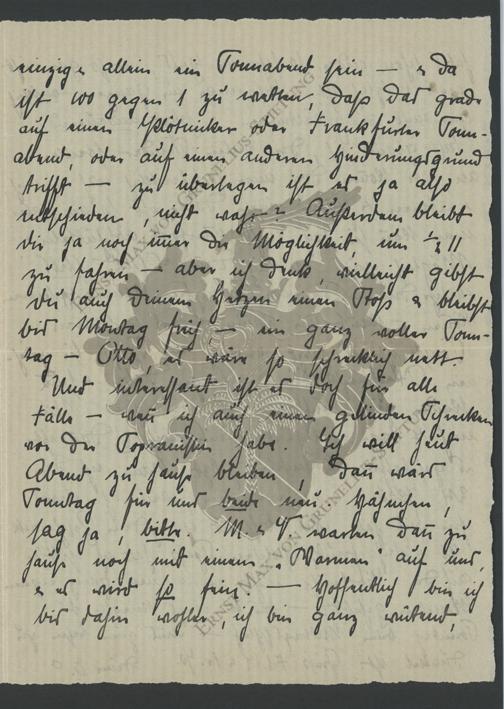 einzige allein ein Sonnabend sein — & da
ist 100 gegen 1 zu wetten, daß das grade
auf einen Frankfurter Sonn-
abend, oder auf einen anderen Hinderungsgrund
trifft — zu überlegen ist es ja also
entschieden, nicht wahr? Außerdem bleibt
dir ja noch immer die Möglichkeit, um ½ 11
zu fahren — aber ich denk, vielleicht gibst
du auch Deinem Herzen einen Stoß & bleibst
bis Montag früh — ein ganz voller Sonn-
tag — Otto, es wäre so schrecklich nett.
Und interessant ist es doch für alle
Fälle — wenn ich auch einen gelinden Schrecken
vor der Sopranistin habe. Ich will heut
Abend zu Hause bleiben, dann wärs
Sonntag für uns beide neu. Hähnchen,
sag ja, bitte. M. & V warten dann zu
Hause noch mit einem „Warmen“ auf uns,
& es wird so fein. — Hoffentlich bin ich
bis dahin wohler, ich bin ganz wütend,
ERNST MAX VON GRUNELIUS-STIFTUNG